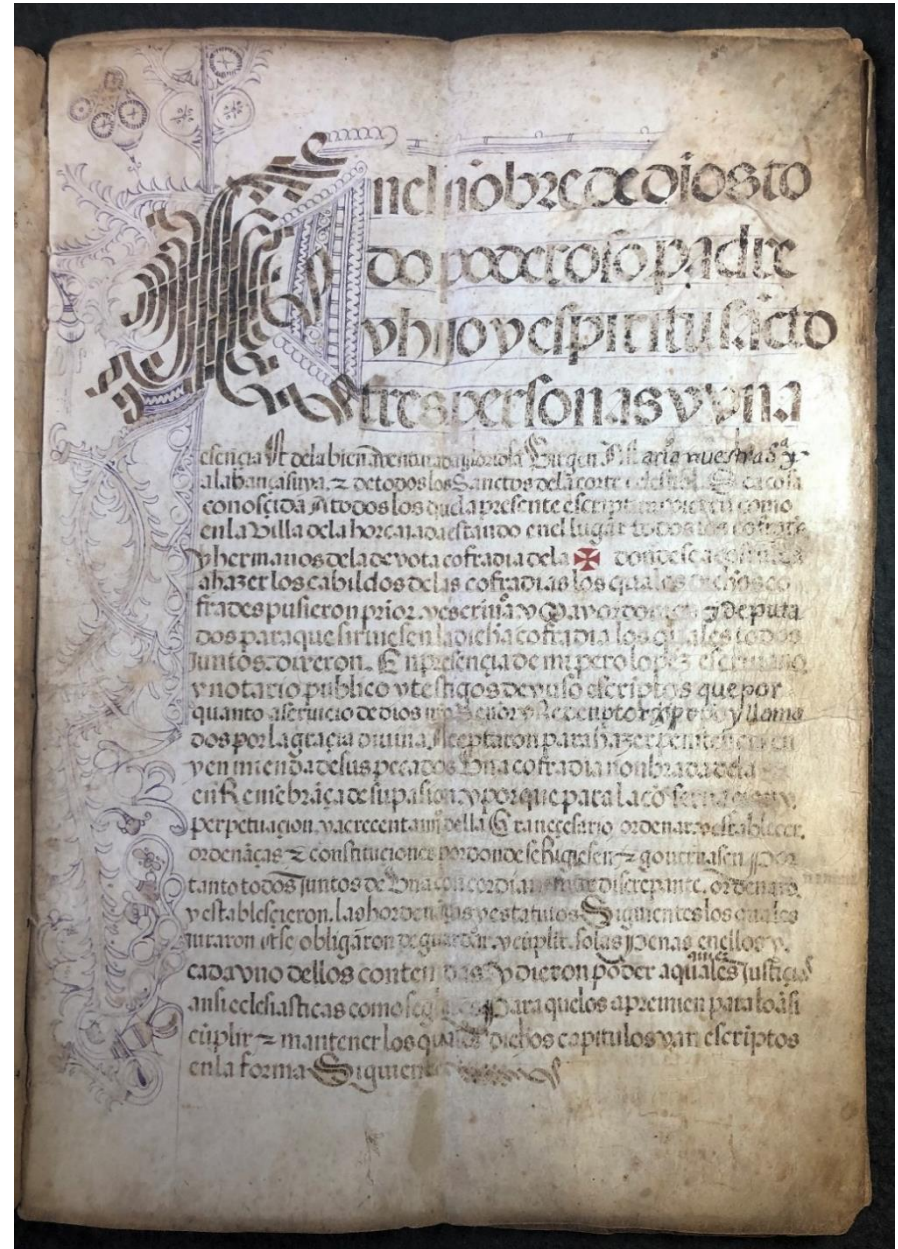 En el nõbre de dios to
do poderoso padre
y hijo y espiritu sãcto
tres personas y vna
esencia At dela bien auenturada gloriosa Virgen Maria nuestra sª
a alabança suya. z de todos los Sanctos dela corte celestial. Sea cosa
conosçida A todos los que la presente escriptura vieren como
en la Villa dela horcajada estando en el lugar todos los cofrades
y hermanos dela devota cofradia dela ✠ donde se acostumbra
a hazer los cabildos delas cofradias los quales dichos co
frades pusieron prior. y escriuã y Mayordomos y deputa
dos para que siruiesen la dicha cofradia los quales todos
Juntos. dixeron. En presençia de mi pero lopez escriuano
y notario publico y testigos de yuso escriptos que por
quanto a seruicio de dios nr̃o Señor y Redemptor xp̃o y llama
dos por la graçia diuina Aceptaron para hazer penitençia en
y enmienda de sus pecados Vna cofradia nonbrada dela
en Remẽbrãça de su pasion. y porque para la cõseruaçion y.
perpetuaçion. y acrecentamiº della Era neçesario ordenar. y establecer.
ordenãças z constituciones por donde se Rigiesen z gouernasen Por
tanto todos juntos de Vna concordia discrepante. ordenarõ.
y establesçieron. las hordenãças y estatutos Siguientes los quales
juraron et se obligaron de guardar. y cũplir. so las penas en ellos y.
cada vno dellos contenidas y dieron põder a quales quier justicias
ansi eclesiasticas como seglares Para que los apremien para lo ãsi
cũplir z mantener los quales dichos capitulos van escriptos
en la forma Siguiente